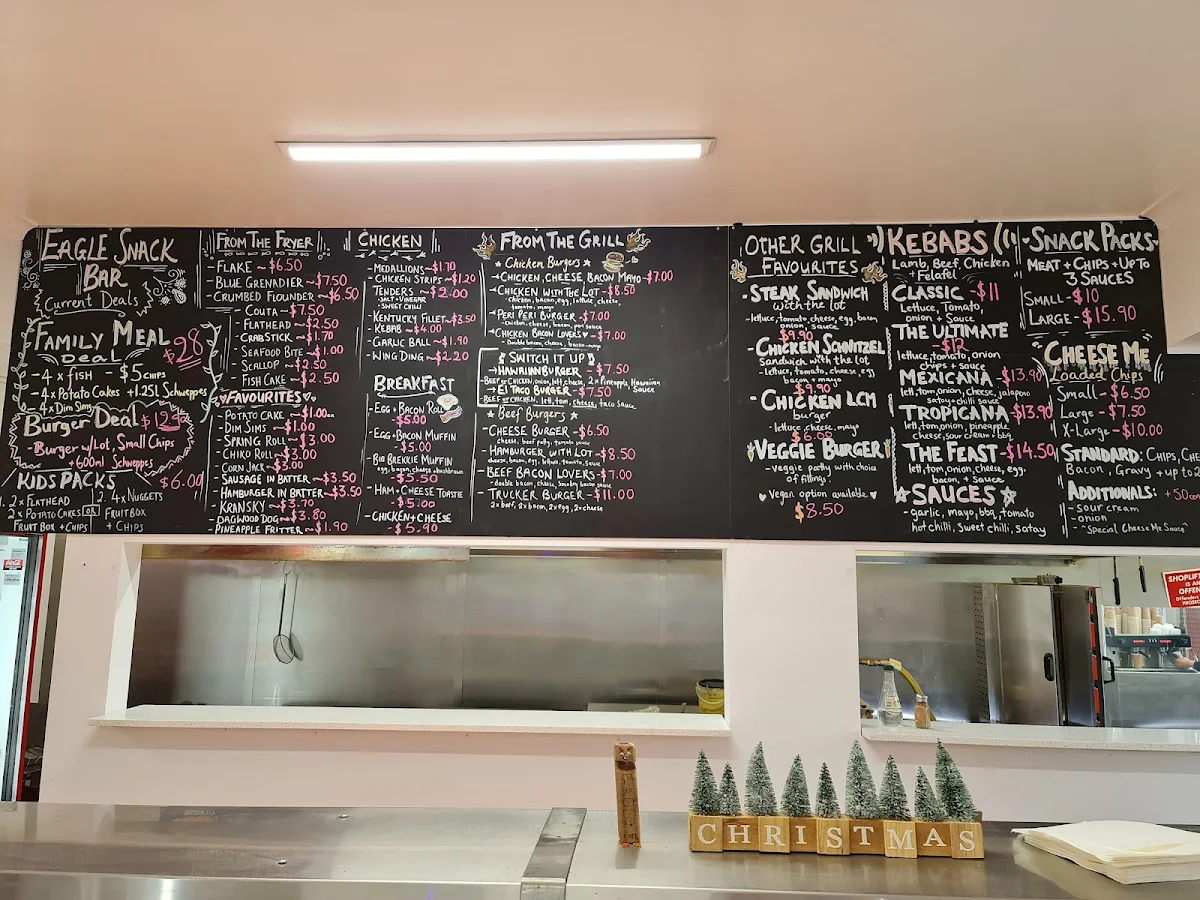 EAGLE SNACK
BAR
Current Deals
FAMILY MEAL
Deal
$28
- 4 x FISH - $5 CHIPS
- 4 x Potato Cakes +1.25l Schweppes
- 4 x Dim Sims
Burger Deal
- Burger w/Lot, Small Chips
+600ml Schweppes
KIDS PACKS $6.00
1. 2 x FLATHEAD
2 x POTATO CAKES OR
FRUIT BOX + CHIPS
2. 4 x NUGGETS
FRUITBOX
+ CHIPS
FROM THE FRYER
- FLAKE ~ $6.50
- BLUE GRENADIER ~ $7.50
- CRUMBED FLOUNDER ~ $6.50
- COUTA ~ $7.50
- FLATHEAD ~ $2.50
- CRABSTICK ~ $1.70
- SEAFOOD BITE ~ $1.00
- SCALLOP ~ $2.50
- FISH CAKE ~ $2.50
♥FAVOURITES♥
- POTATO CAKE ~ $1.00
- DIM SIMS ~ $1.00
- SPRING ROLL ~ $3.00
- CHIKO ROLL ~ $3.00
- CORN JACK ~ $3.00
- SAUSAGE IN BATTER ~ $3.50
- HAMBURGER IN BATTER ~ $3.50
- KRANSKY ~ $3.70
- DAGWOOD DOG ~ $3.80
- PINEAPPLE FRITTER ~ $1.90
CHICKEN
- MEDALLIONS ~ $1.70
- CHICKEN STRIPS ~ $1.20
- TENDERS ~ $2.00
- SALT + VINEGAR
- SWEET CHILLI
- KENTUCKY FILLET ~ $3.50
- KEBAB ~ $4.00
- GARLIC BALL ~ $1.90
- WING DING ~ $2.20
BREAKFAST
- EGG + BACON ROLL
~ $5.00
- EGG + BACON MUFFIN
~ $5.00
- BIG BREKKIE MUFFIN
egg, bacon, cheese + hashbrown
~ $5.50
- HAM + CHEESE TOASTIE
~ $5.00
- CHICKEN + CHEESE
~ $5.90
FROM THE GRILL
* Chicken Burgers *
- CHICKEN, CHEESE, BACON MAYO - $7.00
- CHICKEN WITH THE LOT - $8.50
- chicken, bacon, egg, lettuce, cheese,
tomato, mayo
- PERI PERI BURGER - $7.00
- chicken, cheese, bacon, peri sauce
- CHICKEN BACON LOVERS - $7.00
- Double bacon, cheese, bacon mayo
SWITCH IT UP
- HAWAIIAN BURGER - $7.50
- BEEF or CHICKEN, onion, lett, cheese, 2 x Pineapple, Hawaiian Sauce
- El TACO BURGER - $7.50
- BEEF or CHICKEN, lett, tom, cheese, taco sauce
* Beef Burgers *
- CHEESE BURGER - $6.50
cheese, beef patty, tomato sauce
- HAMBURGER WITH LOT - $8.50
cheese, bacon, egg, lettuce, tomato, sauce
- BEEF BACON LOVERS - $7.00
- double bacon, cheese, smokey bacon sauce
- TRUCKER BURGER - $11.00
2 x beef, 2 x bacon, 2 x egg, 2 x cheese
OTHER GRILL
FAVOURITES
- STEAK SANDWICH
with the lot
- lettuce, tomato, cheese, egg, bacon
onion, sauce
$9.90
- CHICKEN SCHNITZEL
Sandwich with the lot
- lettuce, tomato, cheese, egg
bacon + mayo
$9.90
- CHICKEN LCM
burger
- lettuce, cheese, mayo
$6.00
VEGGIE BURGER
- veggie patty with choice
of fillings
♥ Vegan option available ♥
$8.50
KEBABS
Lamb, Beef, Chicken
+ Felafel
CLASSIC - $11
Lettuce, Tomato,
onion + Sauce
THE ULTIMATE
- $12
lettuce, tomato, onion
chips + sauce
MEXICANA - $13.90
lett, tom, onion, cheese, jalapeno
satay + chilli sauce
TROPICANA - $13.90
lett, tom, onion, pineapple,
cheese, sour cream + bbq
THE FEAST - $14.50
lett, tom, onion, cheese, egg,
bacon, + sauce
☆SAUCES☆
- garlic, mayo, bbq, tomato
hot chilli, sweet chilli, satay
SNACK PACKS
MEAT + CHIPS + UP TO
3 SAUCES
SMALL - $10
LARGE - $15.90
CHEESE ME
Loaded Chips
Small - $6.50
Large - $7.50
X-Large - $10.00
STANDARD: CHIPS, CHE
Bacon, Gravy + up to 2
ADDITIONALS: +50
- sour cream
- onion
- "Special Cheese Me Sauce"
SHOPLIFT
IS AN
OFFEN
CHRISTMAS